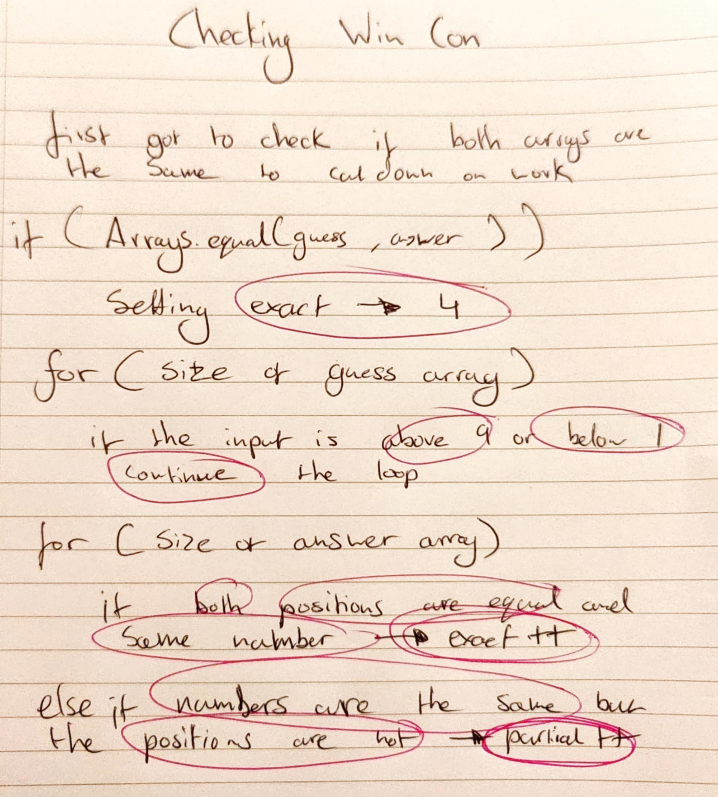 Checking Win Con
first got to check if both arrays are
the same to cut down on work
if ( Arrays.equal(guess , answer ) )
Setting exact → 4
for ( size of guess array )
if the input is above 9 or below 1
continue the loop
for ( size of answer array )
if both positions are equal and
same number → exact ++
else if numbers are the same but
the positions are not → partial ++